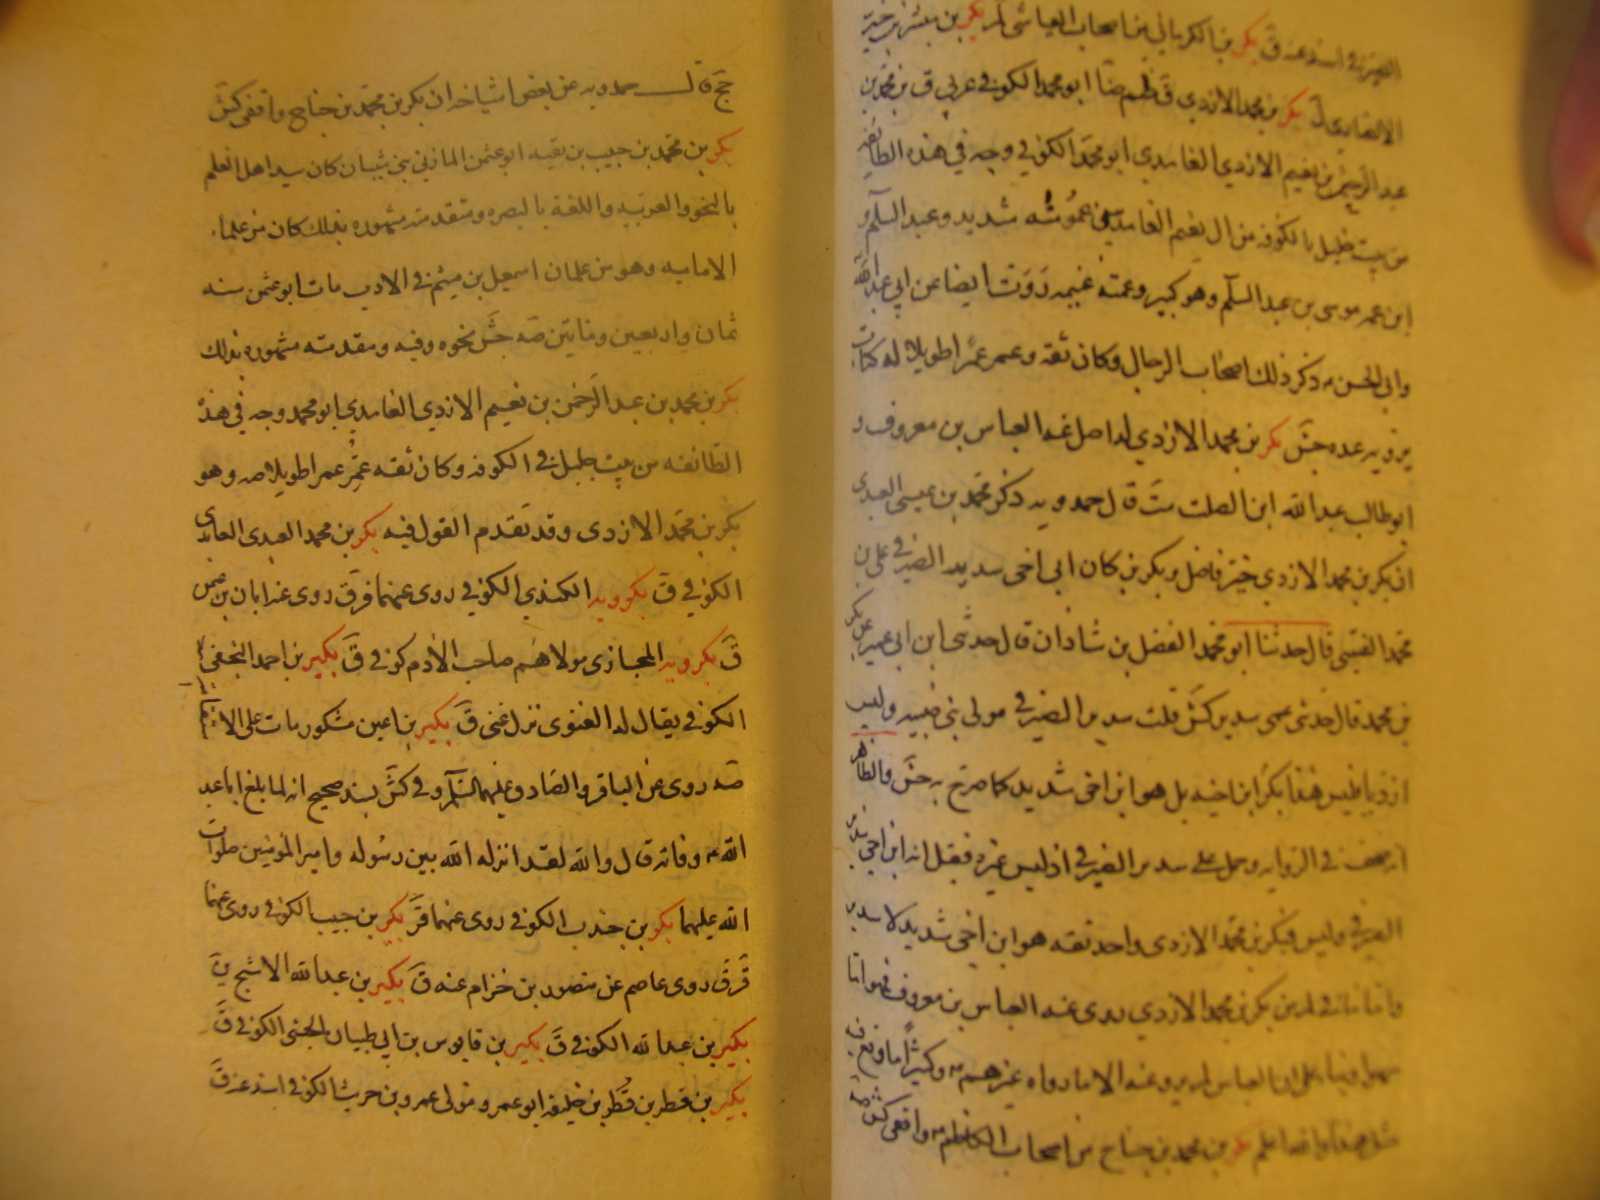 الصيرفي اسند عنه ق بكر بن الكرماني من اصحاب العياشي لم بكر بن مبشر بن خير
الانصاري ل بكر بن محمد الازدي ق ظم ضا ابو محمد الكوفي عربي ق بن محمد بن
عبد الرحمن بن نعيم الازدي الغامدي ابو محمد الكوفي وجه في هذه الطائفه
من بيت جليل بالكوفه من ال نعيم الغامديين عمومته شديد و عبد السلام و
ابن عمه موسى بن عبد السلام وهو كبير وعمته غنيمه روت ايضا عن ابي عبد الله
وابي الحسن ع ذكر ذلك اصحاب الرجال وكان ثقه وعمر عمرا طويلا له كتاب
يرويه عده جش بكر بن محمد الازدي له اصل عنه العباس بن معروف و
ابو طالب عبد الله ابن الصلت ست قال حمدويه ذكر محمد بن عيسى العبيدي
ان بكر بن محمد الازدي خير فاضل و بكر بن كان ابن اخي سدير الصيرفي علي بن
محمد القتيبي قال حدثنا ابو محمد الفضل بن شاذان قال حدثني ابن ابي عمير عن بكر
بن محمد قال حدثني عمي سدير كش قلت سدير الصيرفي مولى بني ضبيه وليس
ازديا فليس هذا بكرا ابن اخيه بل هو ابن اخي شديد كما صرح به جش والظاهر
انه صحف في الروايه وحمل على سدير الصيرفي اذ ليس غيره فقيل انه ابن اخي سدير
الصيرفي وليس فبكر بن محمد الازدي واحد ثقه هو ابن اخي شديد لا سدير
بن بكر بن محمد الازدي يروي عنه العباس بن معروف فهو اما
على ان العباس لم يرو عنه الا ما رواه غيرهم وكثيرا ما وقع
مثل هذا والله اعلم بكر بن محمد بن جناح من اصحاب الكاظم ع واقفي كش صه
جخ قال حمدويه عن بعض اشياخه ان بكر بن محمد بن جناح واقفي كش
بكر بن محمد بن حبيب بن بقيه ابو عثمن المازني بني شيبان كان سيد اهل العلم
بالنحو والعربيه واللغه بالبصره ومتقدمته مشهوره بذلك كان من علماء
الاماميه وهو من غلمان اسمعيل بن ميثم في الادب مات ابو عثمن سنه
ثمان واربعين ومايتين صه جش نحوه وفيه ومقدمته مشهوره بذلك
بكر بن محمد بن عبد الرحمن بن نعيم الازدي الغامدي ابو محمد وجه في هذه
الطائفه من بيت جليل في الكوفه وكان ثقه عمر عمرا طويلا صه وهو
بكر بن محمد الازدى وقد تقدم القول فيه بكر بن محمد العبدى العابدى
الكوفي ق بكرويه الكندي الكوفي روى عنهما قر ق روى عنه ابان بن عثمن
ق بكرويه المحاربي مولاهم صاحب الادم كوفي ق بكير بن احمد النخعي
الكوفي يقال له الغنوى نزل غنى ق بكير بن اعين مشكور مات على الاستقامه
صه روى عن الباقر والصادق عليهما السلام وفي كش بسند صحيح انه لما بلغ ابا عبد
الله ع وفاته قال والله لقد انزله الله بين رسوله وامير المومنين صلوات
الله عليهما بكر بن جندب الكوفي روى عنهما قر بكر بن حبيب الكوفي روى عنهما
قر ق روى عاصم عن منصور بن حزام عنه ق بكير بن عبد الله الاشج ين
بكير بن عبد الله الكوفي ق بكير بن قابوس بن ابي ظبيان الجنبي الكوفي ق
بكير بن قطر بن قطر بن خليفه ابو عمرو مولى عمرو بن حريث الكوفي اسند عنه ق